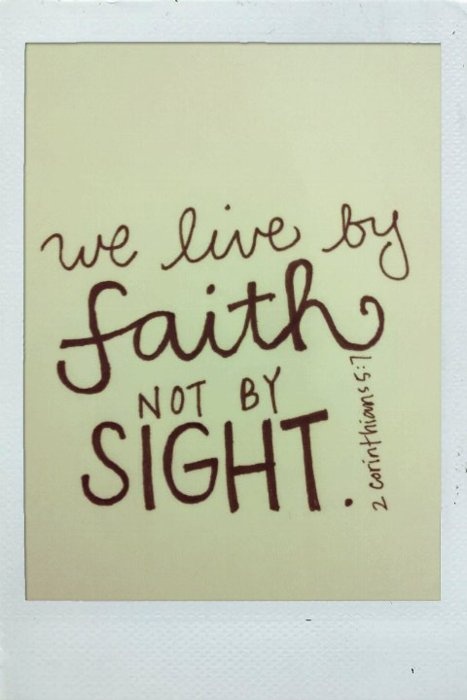 we live by
faith
NOT BY
SIGHT.
2 corinthians 5:7